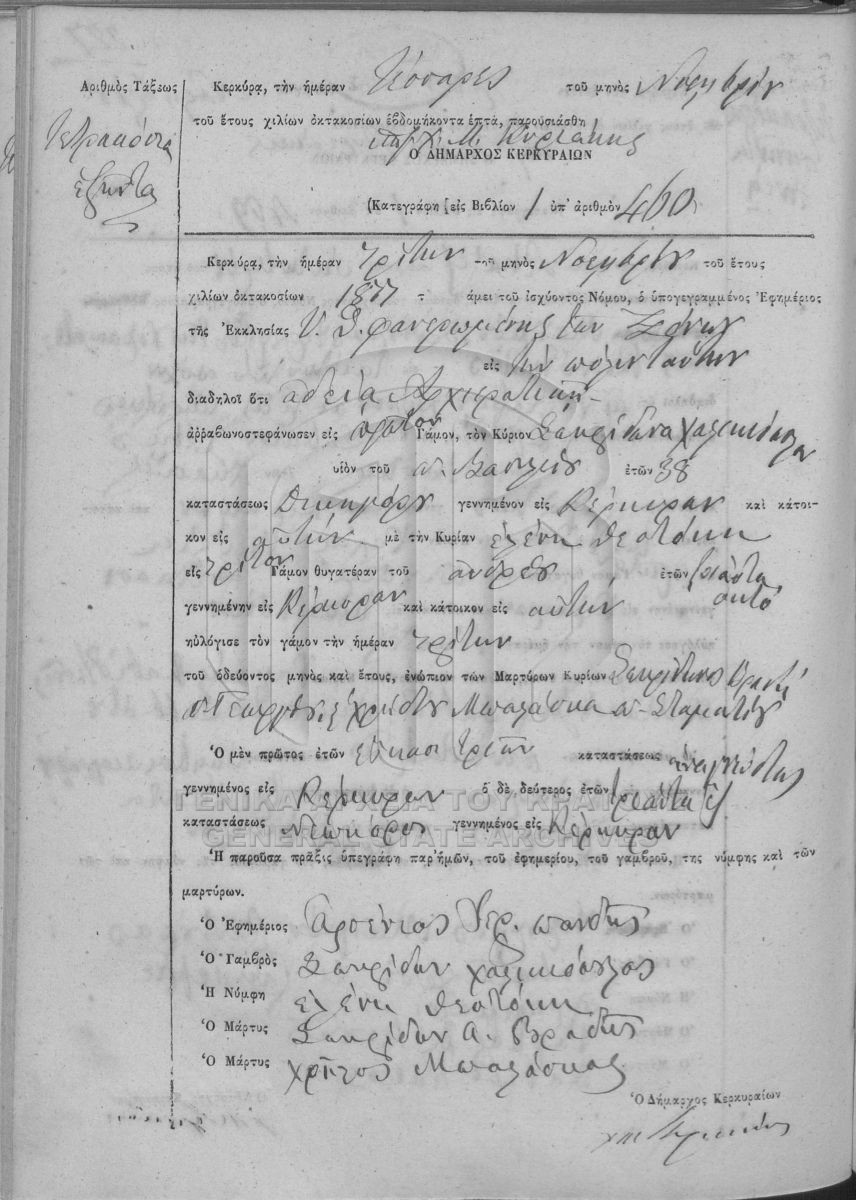 Ἀριθμὸς Τάξεως
Τετρακόσια
ἑξῆντα
Κερκύρᾳ, τὴν ἡμέραν Τέσσαρες τοῦ μηνὸς Νοεμβρίου
τοῦ ἔτους χιλίων ὀκτακοσίων ἑβδομήκοντα ἑπτά, παρουσιάσθη
Μ. Κυριάκης
Ὁ ΔΗΜΑΡΧΟΣ ΚΕΡΚΥΡΑΙΩΝ
(Κατεγράφη [εἰς Βιβλίον 1 ὑπ' ἀριθμὸν 460
Κερκύρᾳ, τὴν ἡμέραν τρίτην τοῦ μηνὸς Νοεμβρίου τοῦ ἔτους
χιλίων ὀκτακοσίων 1877 τ άμει τοῦ ἰσχύοντος Νόμου, ὁ ὑπογεγραμμένος Ἐφημέριος
τῆς Ἐκκλησίας Υ. Θ. φανερωμένης των Ξένων
εἰς τὴν πόλιν ταύτην
διαδηλοῖ ὅτι αδεία Αρχιερατική
ἀρραβωνοστεφάνωσεν εἰς πρῶτον Γάμον, τὸν Κύριον Σπυρίδωνα Χαλικιόπουλον
υἱὸν τοῦ π. Βασιλείου ἐτῶν 38
καταστάσεως γεννημένον εἰς Κέρκυραν καὶ κάτοι-
κον εἰς αὐτήν μὲ τὴν Κυρίαν ελένη Θεοτόκη
εἰς τρίτον Γάμον θυγατέραν τοῦ ανδρέου ἐτῶν τριάντα
οκτό
γεννημένην εἰς Κέρκυραν καὶ κάτοικον εἰς αὐτήν
ηὐλόγισε τὸν γάμον τὴν ἡμέραν τρίτην
τοῦ ὁδεύοντος μηνὸς καὶ ἔτους, ἐνώπιον τῶν Μαρτύρων Κυρίων Σπυρίδωνος Βραδή
π. Γεωργίου, ἐ χρήστου Μπαλάσκα π. Σταματίου
Ὁ μὲν πρῶτος ἐτῶν εἴκοσι τριῶν καταστάσεως ἀναγνώστης
γεννημένος εἰς Κέρκυραν ὁ δὲ δεύτερος ἐτῶν τριάντα ἕξ
καταστάσεως Νεωκόρος γεννημένος εἰς Κέρκυραν
ΓΕΝΙΚΑ ΑΡΧΕΙΑ ΤΟΥ ΚΡΑΤΟΥΣ
GENERAL STATE ARCHIVES
Ἡ παροῦσα πρᾶξις ὑπεγράφη παρ' ἡμῶν, τοῦ ἐφημερίου, τοῦ γαμβροῦ, της νύμφης καὶ τῶν
μαρτύρων.
Ὁ Ἐφημέριος Αρσένιος Ιερ. πανδης
Ὁ Γαμβρὸς Σπυρίδων χαλικιόπουλος
Ἡ Νύμφη ελένη θεοτόκη
Ὁ Μάρτυς Σπυρίδων Α. Βραδης
Ὁ Μάρτυς χρῆστος Μπαλάσκας
Ὁ Δήμαρχος Κερκυραίων